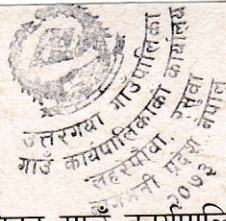 उत्तरगया गाउँपालिका
गाउँ कार्यपालिकाको कार्यालय
लहरेपौवा, रसुवा
बागमती प्रदेश, नेपाल
२०७३